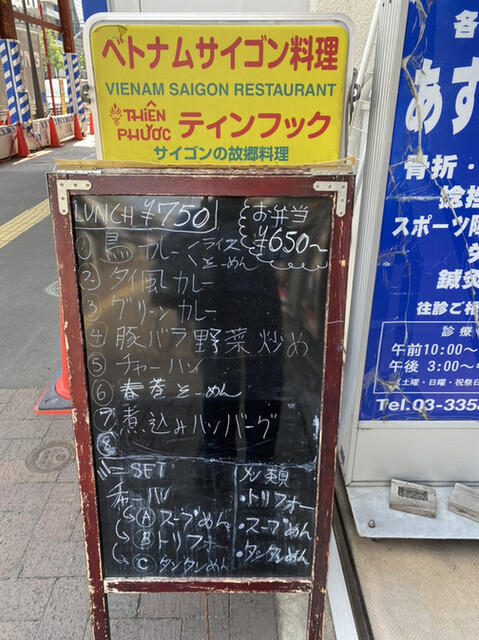 ベトナムサイゴン料理
VIENAM SAIGON RESTAURANT
THIÊN PHƯỚC ティンフック
サイゴンの故郷料理
LUNCH ¥750
お弁当
¥650~
① 鳥カレー ライス
そーめん
② タイ風カレー
③ グリーンカレー
④ 豚バラ野菜炒め
⑤ チャーハン
⑥ 春巻そーめん
⑦ 煮込みハンバーグ
⑧
ミニSET
チャーハン
Ⓐ スープめん
Ⓑ トリフォー
Ⓒ タンタンめん
メン類
・トリフォー
・スープめん
・タンタンめん
各
あす
骨折・
捻挫
スポーツ障
鍼灸
往診ご相
診療
午前10:00~
午後 3:00~
土曜・日曜・祝祭日
Tel.03-335